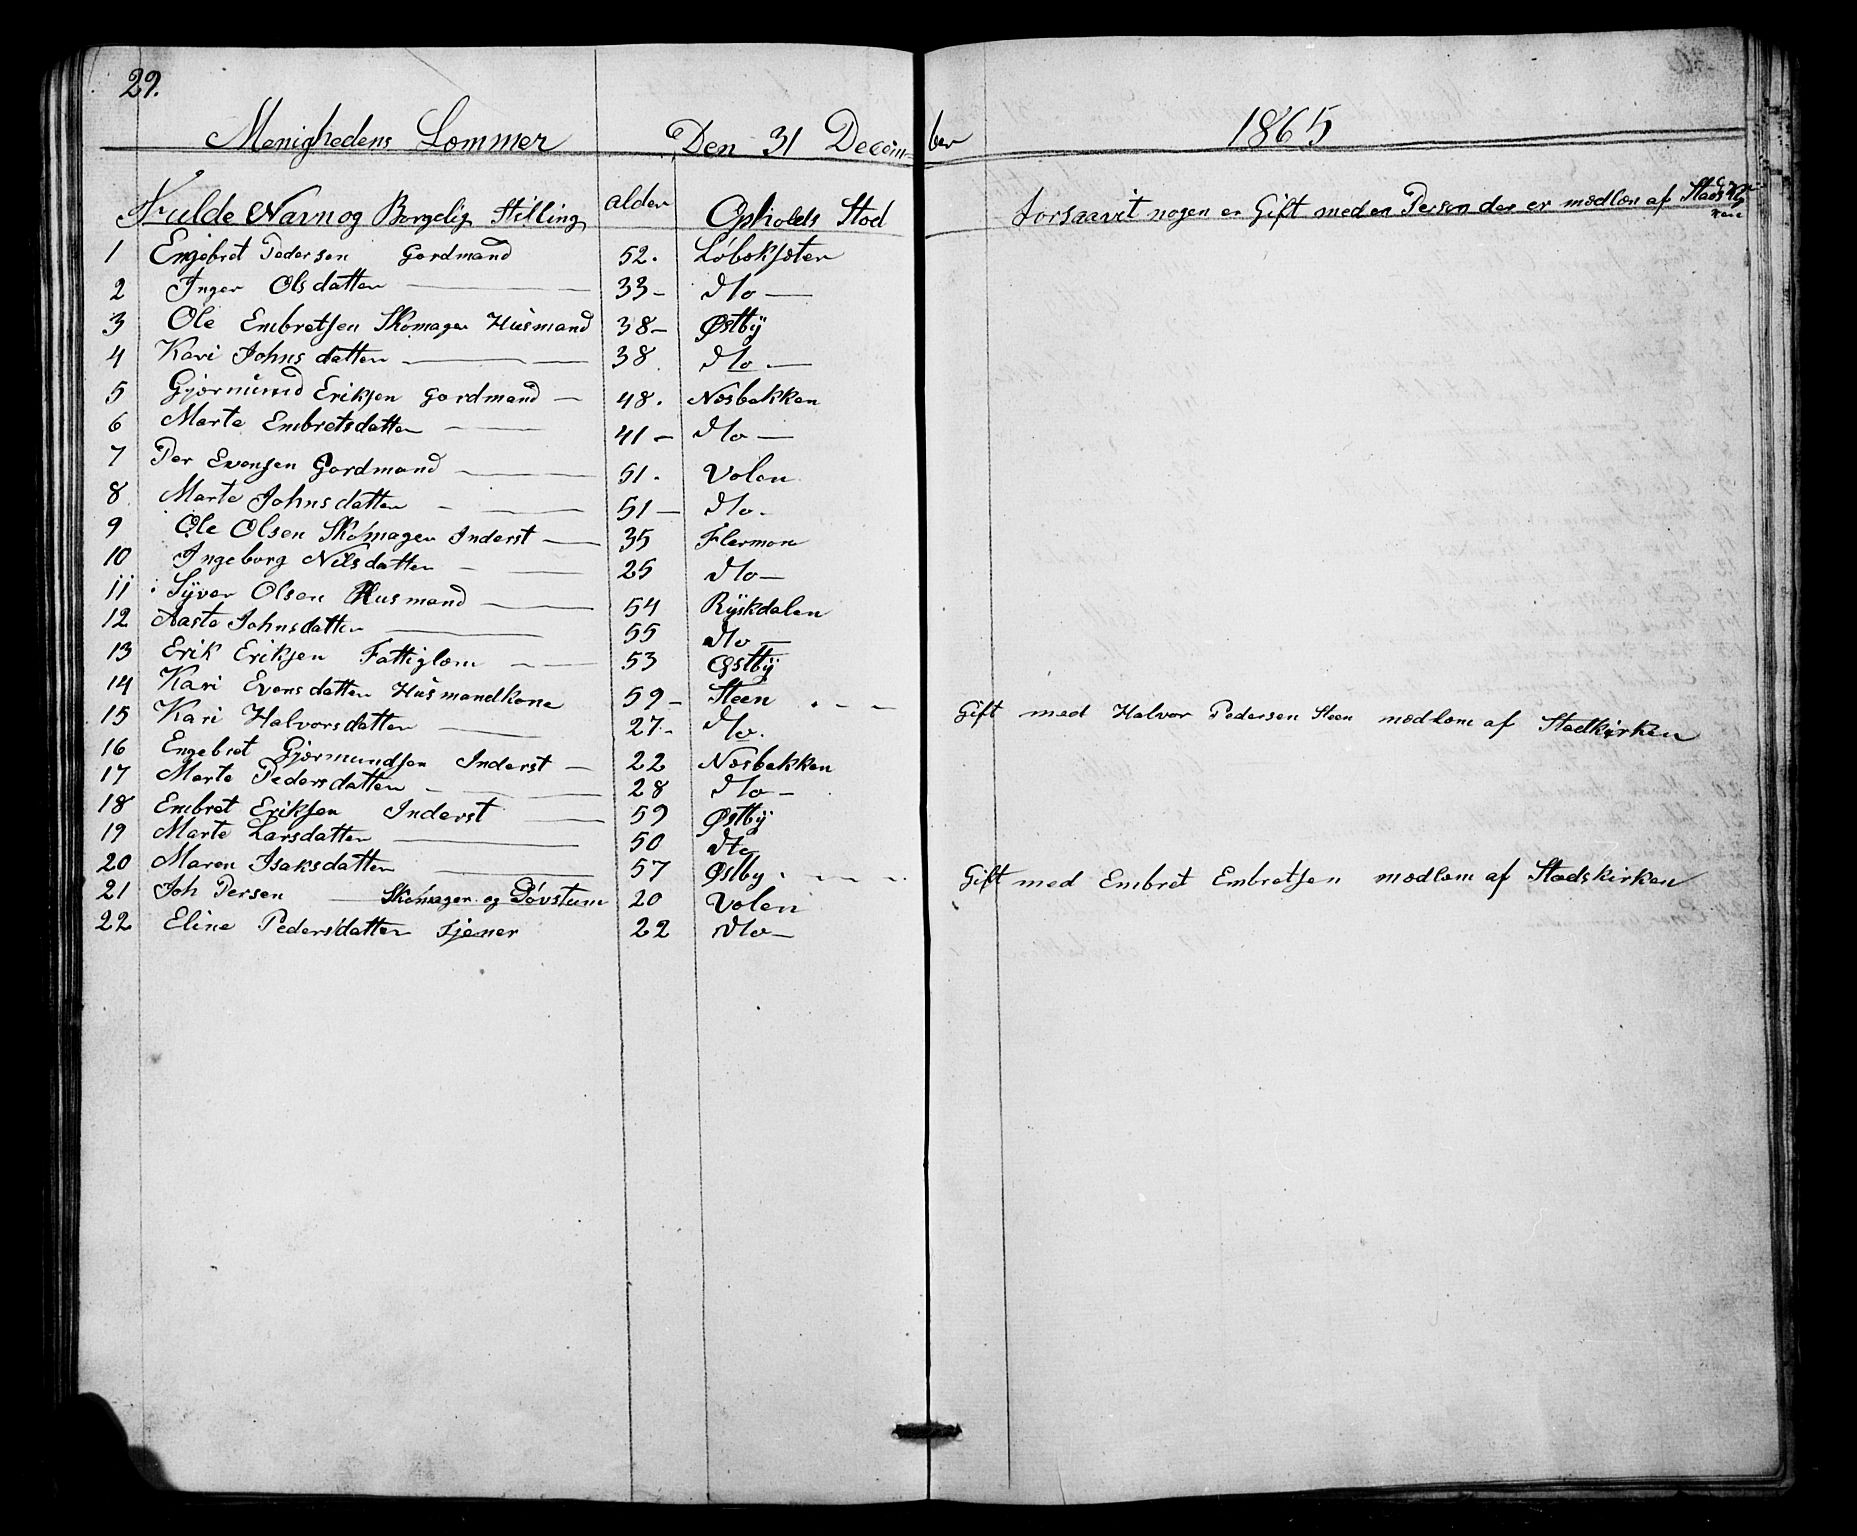 29.
Menighedens Lemmer Den 31 December 1865
Fulde Navn og Borgelig Stilling alder Opholds Sted forsaavit nogen er Gift med en Person der er medlem af Stads
1 Engebret Pedersen Gardmand 52. Løbeksæter
2 Inger Olsdatter 33 Dto
3 Ole Embretsen Skomager Husmand 38 Østby
4 Kari Johnsdatter 38 Dto
5 Gjørmund Eriksen Gardmand 48. Næsbakken
6 Marte Embretsdatter 41 Dto
7 Per Evensen Gardmand 51. Volen
8 Marte Johnsdatter 51 Dto.
9 Ole Olsen Skomager Inderst 35 Flermon
10 Ingeborg Nilsdatter 25 Dto
11 Syver Olsen Husmand 54 Ryskdalen
12 Aaste Johnsdatter 55 Dto
13 Erik Eriksen Fattiglem 53 Østby
14 Kari Evensdatter Husmandkone 59 Steen Gift med Halvor Pedersen Steen medlem af Stadkirken
15 Kari Halvorsdatter 27 Dto.
16 Engebret Gjørmundsen Inderst 22 Næsbakken
17 Marte Pedersdatter 28 Dto
18 Embret Eriksen Inderst 59 Østby
19 Marte Larsdatter 50 Dto
20 Maren Isaksdatter 57 Østby Gift med Embret Embretsen medlem af Stadskirken
21 Joh Persen Skomager og Døvstum 20 Volen
22 Eline Pedersdatter tjener 22 Dto